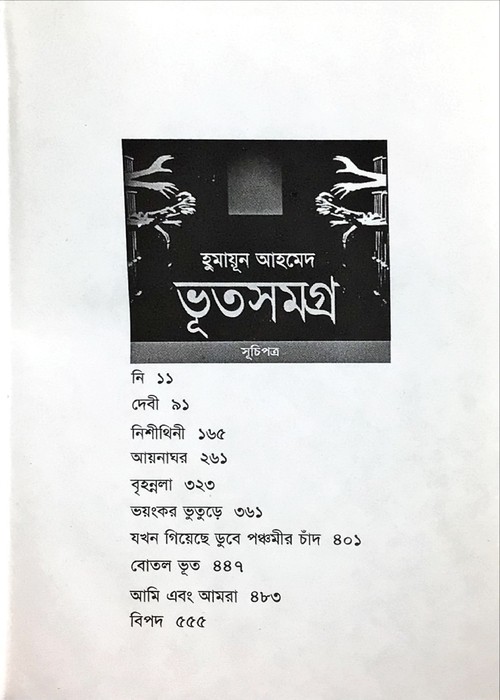 হুমায়ূন আহমেদ
ভূতসমগ্র
সূচিপত্র
নি ১১
দেবী ৯১
নিশীথিনী ১৬৫
আয়নাঘর ২৬১
বৃহন্নলা ৩২৩
ভয়ংকর ভুতুড়ে ৩৬১
যখন গিয়েছে ডুবে পঞ্চমীর চাঁদ ৪০১
বোতল ভূত ৪৪৭
আমি এবং আমরা ৪৮৩
বিপদ ৫৫৫